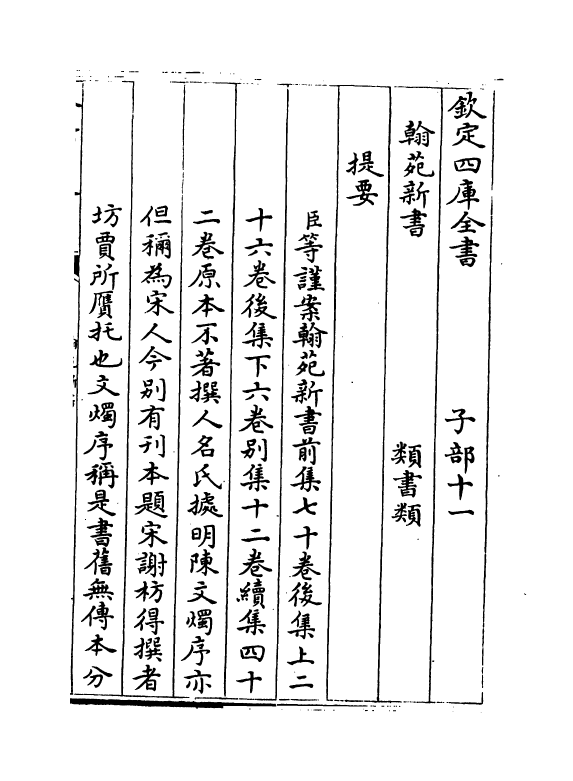 欽定四庫全書　子部十一
翰苑新書　類書類
提要
臣等謹案翰苑新書前集七十卷後集上二
十六卷後集下六卷别集十二卷續集四十
二卷原本不著撰人名氏㨿明陳文燭序亦
但稱為宋人今别有刊本題宋謝枋得撰者
坊賈所贗托也文燭序稱是書舊無傳本分